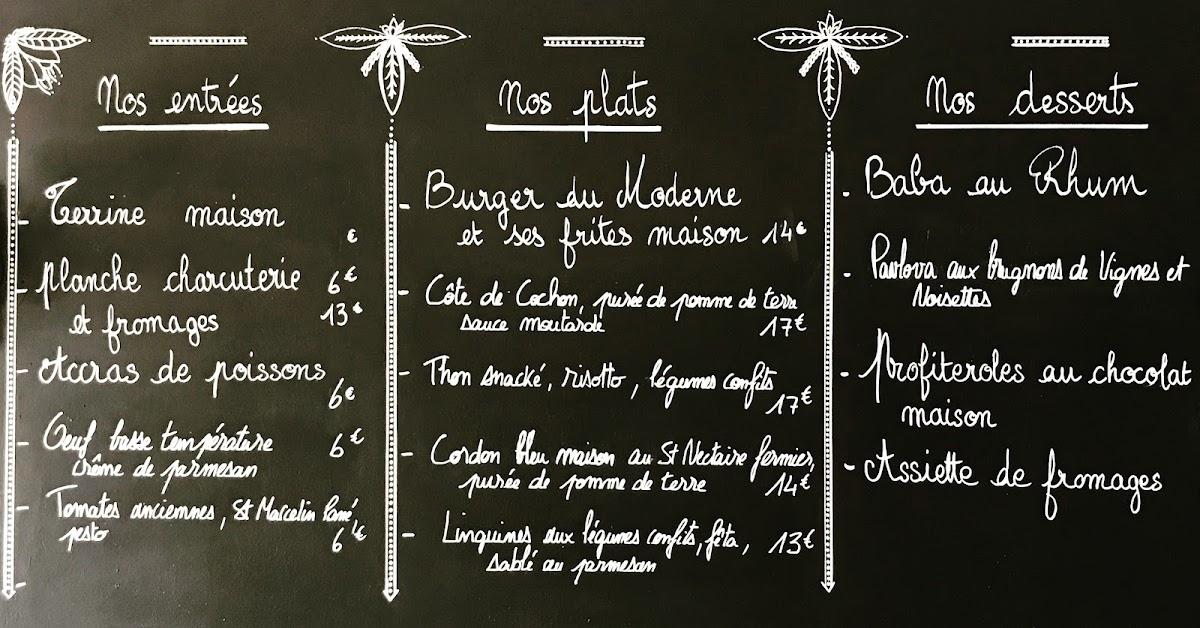 Nos entrées
- Terrine maison
€
- planche charcuterie 6€
et fromages 13€
- Accras de poissons
6€
- Oeuf basse température 6€
crème de parmesan
- Tomates anciennes, St Marcelin pané,
pesto 6€
-
Nos plats
- Burger du Moderne
et ses frites maison 14€
- Côte de Cochon, purée de pomme de terre
sauce moutarde 17€
- Thon snacké, risotto, légumes confits
17€
- Cordon bleu maison au St Nectaire fermier,
purée de pomme de terre 14€
- Linguines aux légumes confits, fêta, 13€
sablé au parmesan
Nos desserts
- Baba au Rhum
- Pavlova aux brugnons de Vignes et
Noisettes
- Profiteroles au chocolat
maison
- Assiette de fromages